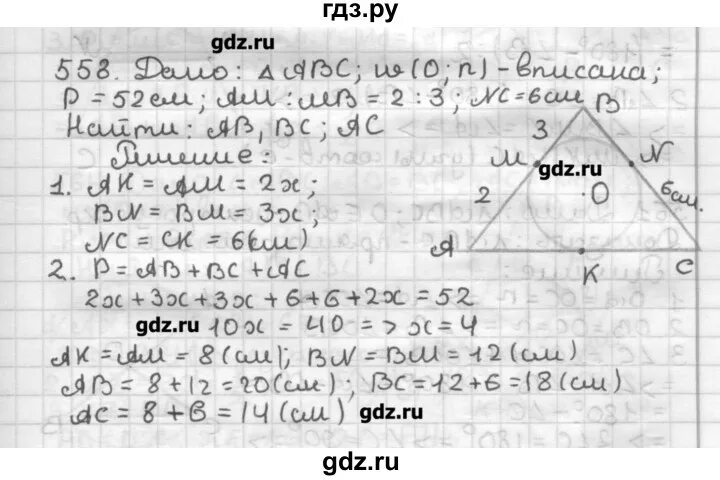 гдз.ру
gdz.ru
558. Дано: △ABC; ω(O; r) - вписана;
P = 52 см; AM : MB = 2 : 3; NC = 6 см
Найти: AB, BC; AC
Решение:
1. AK = AM = 2x;
BN = BM = 3x;
NC = CK = 6(см)
2. P = AB + BC + AC
2x + 3x + 3x + 6 + 6 + 2x = 52
gdz.ru 10x = 40 => x = 4
AK = AM = 8 (см); BN = BM = 12 (см)
AB = 8 + 12 = 20(см); BC = 12 + 6 = 18 (см)
AC = 8 + 6 = 14 (см) gdz.ru
B
3
M
N
gdz.ru
2
O
6см.
A
K
C
gdz.ru